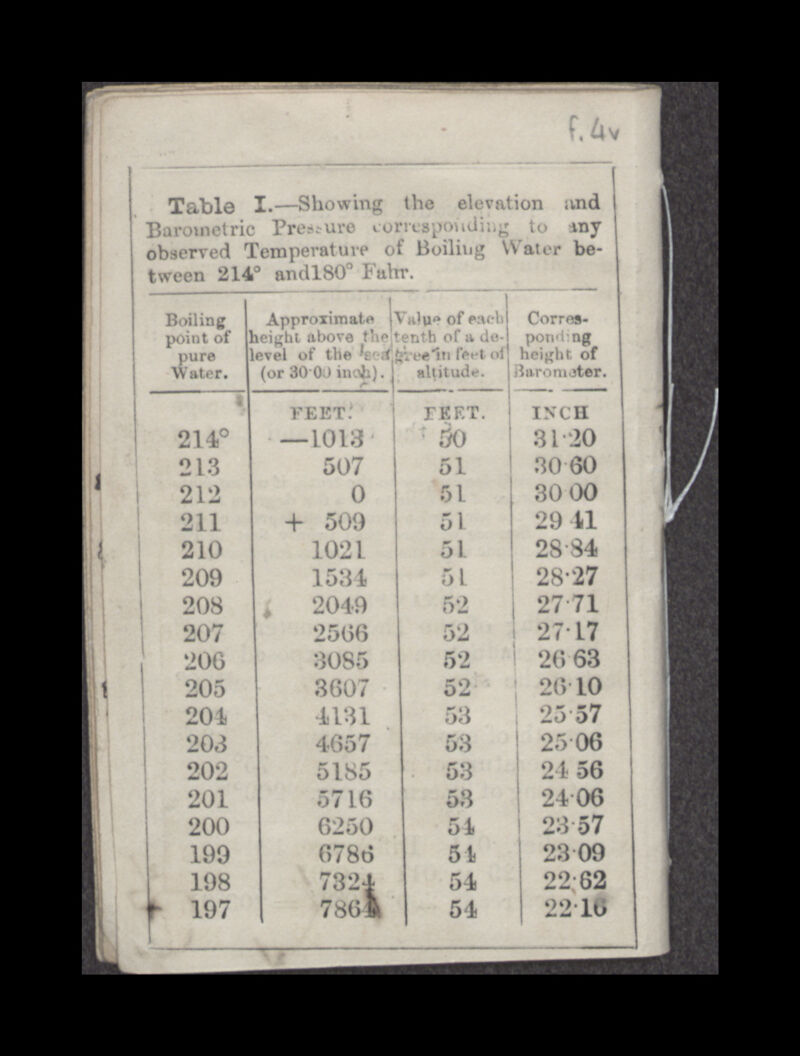 f. 4v
Table I.—Showing the elevation and
Barometric Pressure corresponding to any
observed Temperature of Boiling Water be-
tween 214° and180° Fahr.
Boiling point of pure Water. Approximate height above the level of the sea (or 30·00 inch). Value of each tenth of a de- gree in feet of altitude. Corres- ponding height of Barometer.
FEET. FEET. INCH
214° —1013 50 31·20
213 507 51 30·60
212 0 51 30 00
211 + 509 51 29 41
210 1021 51 28·84
209 1534 51 28·27
208 2049 52 27·71
207 2566 52 27·17
206 3085 52 26 63
205 3607 52 26·10
204 4131 53 25·57
203 4657 53 25·06
202 5185 53 24 56
201 5716 53 24·06
200 6250 54 23·57
199 6786 54 23·09
198 7324 54 22·62
197 7864 54 22·16